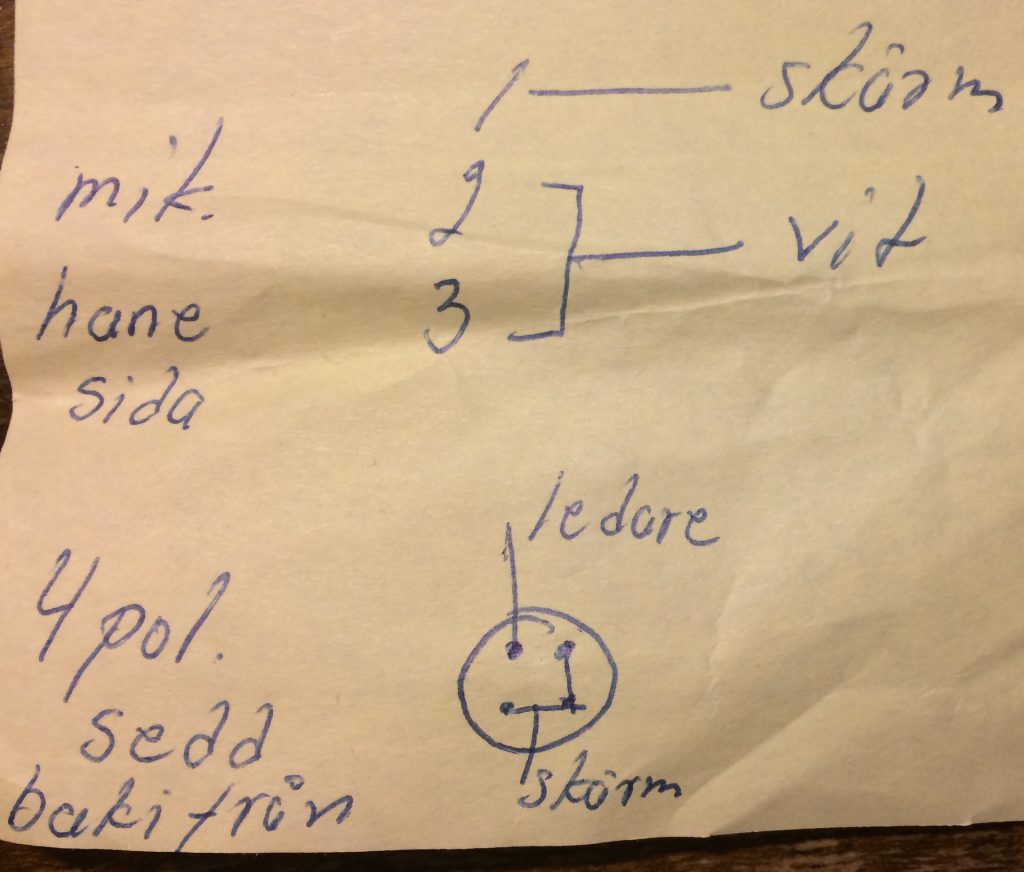 1 skärm
mik. 2 vit
hane 3
sida
ledare
4 pol.
sedd
skärm
bakifrån